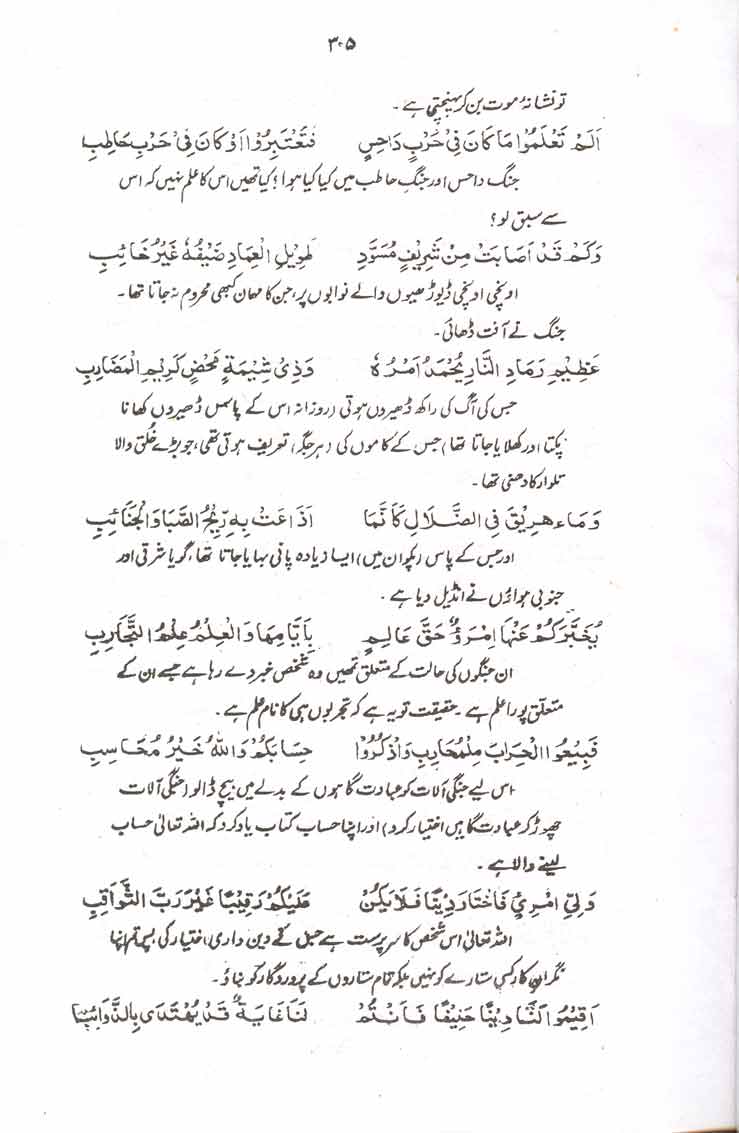 ۳۰۵
تو نشانۂ موت بن کر پہنچتی ہے۔
اَلَمْ تَعْلَمُوا مَا كَانَ فِیْ حَرْبِ دَاحِسٍ فَتَعْتَبِرُوْا اَوْ كَانَ فِیْ حَرْبِ حَاطِبِ
جنگ داحس اور جنگِ حاطب میں کیا کیا ہوا؟ کیا تمھیں اس کا علم نہیں کہ اس
سے سبق لو؟
وَكَمْ قَدْ اَصَابَتْ مِنْ شَرِیْفٍ مُسَوَّدٍ طَوِیْلِ الْعِمَادِ ضَیْفُهٗ غَیْرُ خَائِبِ
اونچی اونچی ڈیوڑھیوں والے نوابوں پر، جن کا مہمان کبھی محروم نہ جاتا تھا۔
جنگ نے آفت ڈھائی۔
عَظِیْمِ رَمَادِ النَّارِ یُحْمَدُ اَمْرُهٗ وَذِیْ شِیْمَةٍ مَحْضٍ كَرِیْمِ الْمَضَارِبِ
جس کی آگ کی راکھ ڈھیروں ہوتی (روزانہ اس کے پاس ڈھیروں کھانا
پکتا اور کھلایا جاتا تھا) جس کے کاموں کی (ہر جگہ) تعریف ہوتی تھی، جو بڑے خُلق والا
تلوار کا دھنی تھا۔
وَمَاءٍ هُرِیْقَ فِی الضَّلَالِ كَاَنَّمَا اَذَاعَتْ بِهٖ رِیْحُ الصَّبَا وَالْجَنَائِبِ
اور جس کے پاس (پکوان میں) ایسا زیادہ پانی بہایا جاتا تھا، گویا شرقی اور
جنوبی ہواؤں نے انڈیل دیا ہے۔
یُخَبِّرُكُمْ عَنْهَا امْرَؤٌ حَقُّ عَالِمٍ بِاَیَّامِهَا وَالْعِلْمُ عِلْمُ التَّجَارِبِ
ان جنگوں کی حالت کے متعلق تمھیں وہ شخص خبر دے رہا ہے جسے ان کے
متعلق پورا علم ہے۔ حقیقت تو یہ ہے کہ تجربوں ہی کا نام علم ہے۔
فَبِیْعُوا الْحِرَابَ مِلْمُحَارِبِ وَاذْكُرُوْا حِسَابَكُمْ وَاللّٰهُ خَیْرُ مُحَاسِبِ
اس لیے جنگی آلات کو عبادت گاہوں کے بدلے میں بیچ ڈالو (جنگی آلات
چھوڑ کر عبادت گاہیں اختیار کرو) اور اپنا حساب کتاب یاد کرو کہ اللہ تعالیٰ حساب
لینے والا ہے۔
وَلِیُّ امْرِیٍٔ فَاخْتَارَ دِیْنًا فَلَا یَكُنْ عَلَیْكُمْ رَقِیْبًا غَیْرَ رَبِّ الثَّوَاقِبِ
اللہ تعالیٰ اس شخص کا سرپرست ہے جس نے دین داری اختیار کی بس تم اپنا
نگران کار کسی ستارے کو نہیں بلکہ تمام ستاروں کے پروردگار کو بناؤ۔
اَقِیْمُوْا لَنَا دِیْنًا حَنِیْفًا فَاَنْتُمْ لَنَا غَایَةٌ قَدْ یُهْتَدٰی بِالذَّوَائِبِ